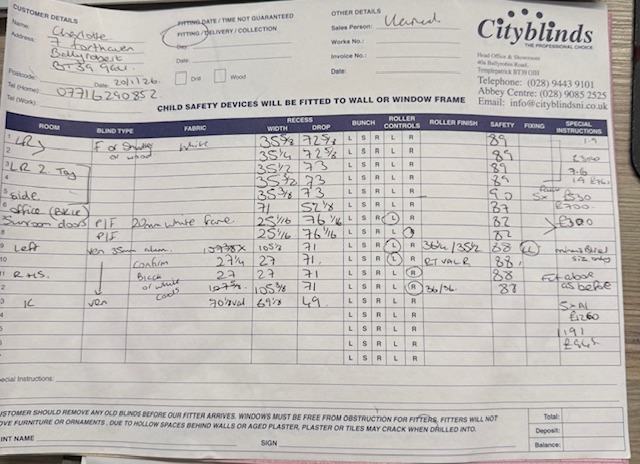 CUSTOMER DETAILS
Name: Charlotte
Address: 9 Forthaven
Ballyrobert
Postcode: BT39 9GU.
20/1/26.
Tel (Home): 07716290852.
Tel (Work):
FITTING DATE / TIME NOT GUARANTEED
FITTING / DELIVERY / COLLECTION
Day
Date
Drill Wood
OTHER DETAILS
Sales Person:
Works No.:
Invoice No.:
Date:
Cityblinds
THE PROFESSIONAL CHOICE
Head Office & Showroom
40a Ballyrobin Road,
Templepatrick BT39 0JH
Telephone: (028) 9443 9101
Abbey Centre: (028) 9085 2525
Email: info@cityblindsni.co.uk
CHILD SAFETY DEVICES WILL BE FITTED TO WALL OR WINDOW FRAME
ROOM BLIND TYPE FABRIC RECESS WIDTH DROP BUNCH ROLLER CONTROLS ROLLER FINISH SAFETY FIXING SPECIAL INSTRUCTIONS
1 LR white 35 5/8 72 5/8 L S R L R 89 1.9
2 or wood 35 1/4 72 5/8 L S R L R 89
3 LR 2. 35 1/2 73 L S R L R 89 7.6
4 35 1/2 73 L S R L R 89
5 Side 35 3/8 73 L S R L R 90 5x £530
6 office 71 52 1/8 L S R L R 87 £700.
Sunroom doors P/F 22mm white 25 1/16 76 1/16 L S R L R 82 £300
8 P/F 25 1/16 76 1/16 L S R L R 82
9 Left ven 35mm alum. 105 1/2 71 L S R L R 36 1/4 / 35 1/2 88
10 confirm 27 1/4 27 71. L S R L R 88.
11 RHS. Black 27 27 71 L S R L R 88 as above
2 or white 105 3/8 71 L S R L R 36/36. 88 as before
3 K ven cords 69 1/8 49 L S R L R
4 L S R L R £1260
5 L S R L R 191
L S R L R
L S R L R
Special Instructions:
CUSTOMER SHOULD REMOVE ANY OLD BLINDS BEFORE OUR FITTER ARRIVES. WINDOWS MUST BE FREE FROM OBSTRUCTION FOR FITTERS, FITTERS WILL NOT
MOVE FURNITURE OR ORNAMENTS. DUE TO HOLLOW SPACES BEHIND WALLS OR AGED PLASTER, PLASTER OR TILES MAY CRACK WHEN DRILLED INTO.
PRINT NAME SIGN
Total:
Deposit:
Balance: